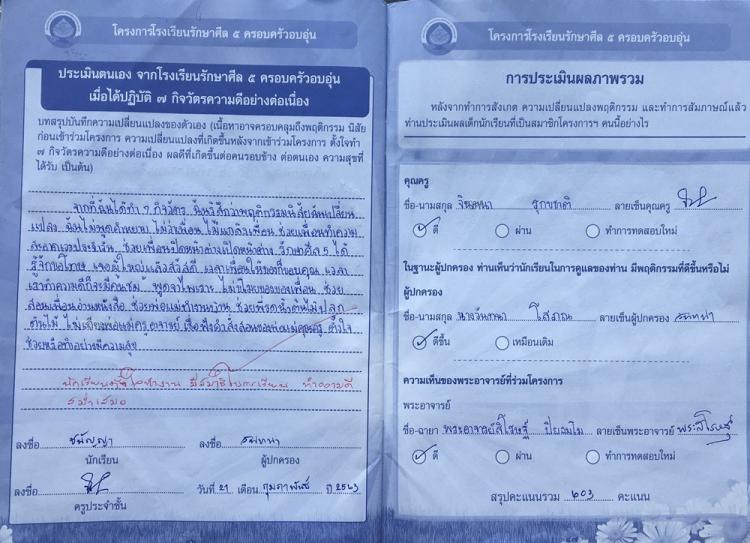 โครงการโรงเรียนรักษาศีล ๕ ครอบครัวอบอุ่น
ประเมินตนเอง จากโรงเรียนรักษาศีล ๕ ครอบครัวอบอุ่น
เมื่อได้ปฏิบัติ ๗ กิจวัตรความดีอย่างต่อเนื่อง
บทสรุปบันทึกความเปลี่ยนแปลงของตัวเอง (เนื้อหาอาจครอบคลุมถึงพฤติกรรม นิสัย
ก่อนเข้าร่วมโครงการ ความเปลี่ยนแปลงที่เกิดขึ้นหลังจากเข้าร่วมโครงการ ตั้งใจทำ
๗ กิจวัตรความดีอย่างต่อเนื่อง ผลดีที่เกิดขึ้นต่อคนรอบข้าง ต่อตนเอง ความสุขที่
ได้รับ เป็นต้น)
จากที่ฉันได้ทำ 7 กิจวัตร ฉันรู้สึกว่าพฤติกรรมนิสัยฉันเปลี่ยน
แปลง ฉันไม่พูดคำหยาบ ไม่ว่าเพื่อน ไม่แกล้งเพื่อน ช่วยเพื่อนทำความ
สะอาดเวรประจำวัน ช่วยเพื่อนปิดหน้าต่างเปิดหน้าต่าง รักษาศีล 5 ได้
รู้จักขอโทษ เจอผู้ใหญ่แล้วสวัสดี เวลาเพื่อนให้ของก็ขอบคุณ เวลา
เราทำความดีก็จะมีคนชม พูดจาไพเราะ ไม่ขโมยของของเพื่อน ช่วย
สอนเพื่อนอ่านหนังสือ ช่วยพ่อแม่ทำงานบ้าน ช่วยพี่รดน้ำต้นไม้ปลูก
ต้นไม้ ไม่เถียงพ่อแม่ครูอาจารย์ เชื่อฟังคำสั่งสอนของพ่อแม่คุณครู ตั้งใจ
ช่วยเหลือทำอย่างมีความสุข
นักเรียนตั้งใจทำงาน มีสมาธิในการเรียน ทำความดี
สม่ำเสมอ
ลงชื่อ ชนัญญา ลงชื่อ
นักเรียน ผู้ปกครอง
ลงชื่อ วันที่ 21 เดือน กุมภาพันธ์ ปี 2563
ครูประจำชั้น
โครงการโรงเรียนรักษาศีล ๕ ครอบครัวอบอุ่น
การประเมินผลภาพรวม
หลังจากทำการสังเกต ความเปลี่ยนแปลงพฤติกรรม และทำการสัมภาษณ์แล้ว
ท่านประเมินผลเด็กนักเรียนที่เป็นสมาชิกโครงการฯ คนนี้อย่างไร
คุณครู
ชื่อ-นามสกุล จินตนา สุกขชาติ ลายเซ็นคุณครู
ดี ผ่าน ทำการทดสอบใหม่
ในฐานะผู้ปกครอง ท่านเห็นว่านักเรียนในการดูแลของท่าน มีพฤติกรรมที่ดีขึ้นหรือไม่
ผู้ปกครอง
ชื่อ-นามสกุล นางวันทนา โสภณ ลายเซ็นผู้ปกครอง
ดีขึ้น เหมือนเดิม
ความเห็นของพระอาจารย์ที่ร่วมโครงการ
พระอาจารย์
ชื่อ-ฉายา พระอาจารย์สิโรษฐ์ ปิยธมฺโม ลายเซ็นพระอาจารย์ พระสิโรษฐ์
ดี ผ่าน ทำการทดสอบใหม่
สรุปคะแนนรวม ๒๐๓ คะแนน